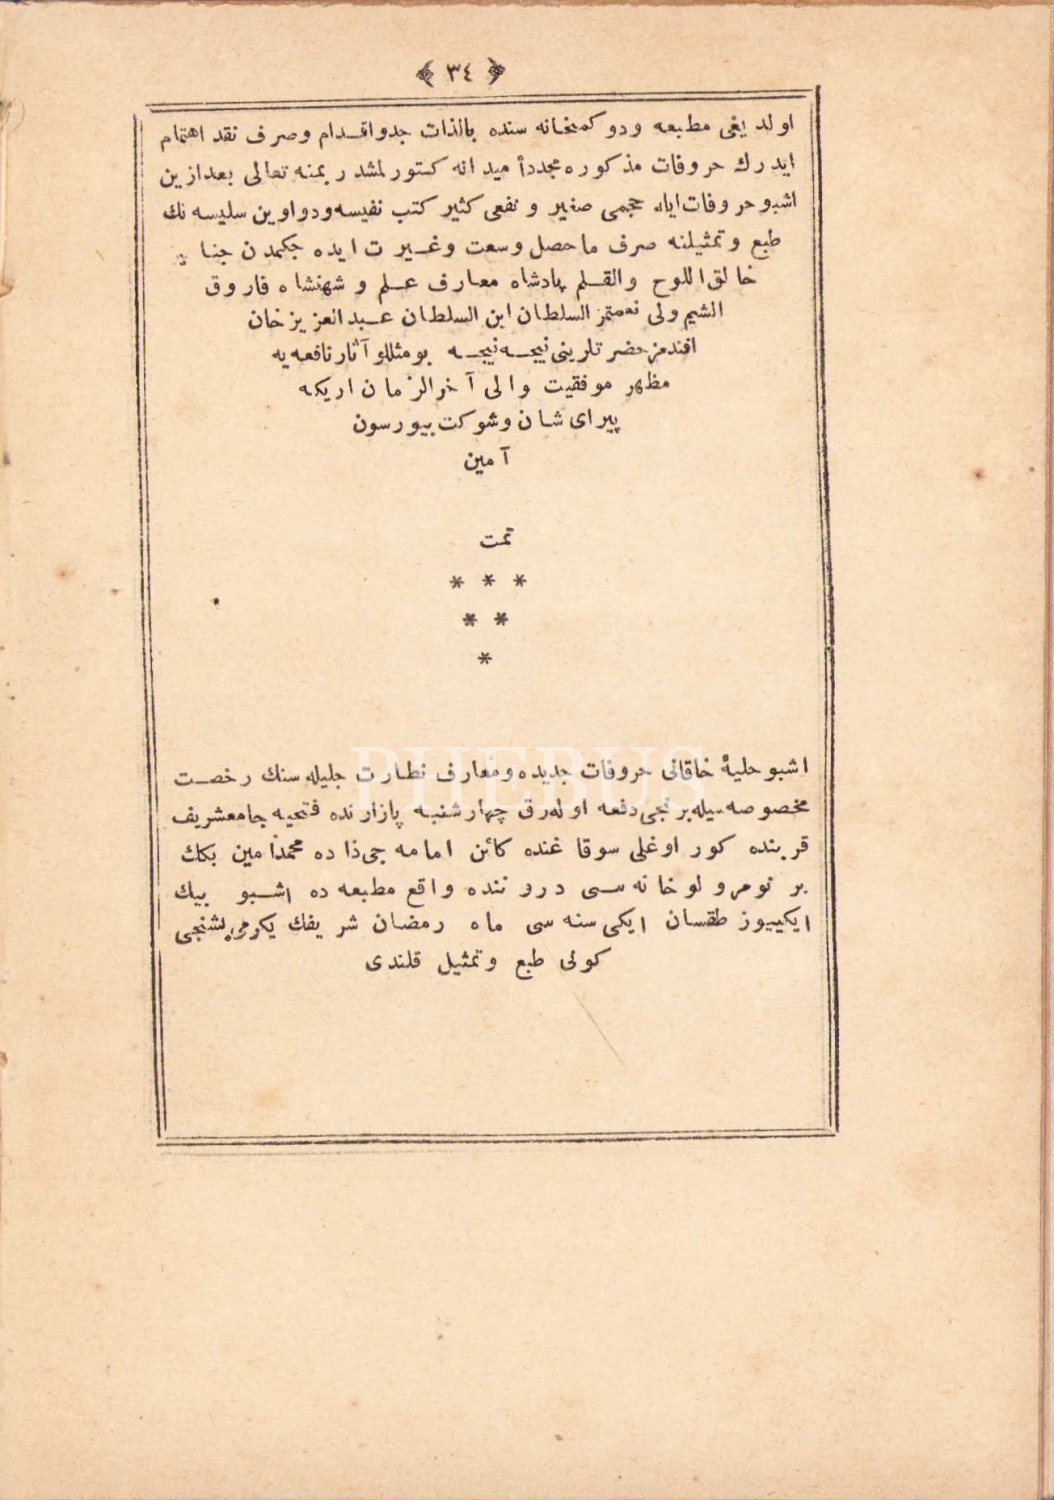 ﴿ ٣٤ ﴾
اولديغى مطبعه و دوكمخانه سنده بالذات جد و اقدام و صرف نقد اهتمام
ايدرك حروفات مذكوره مجدداً ميدانه كستورلمشدر بمنه تعالى بعدازين
اشبو حروفات ايله حجمى صغير و نفعى كثير كتب نفيسه و دواوين سليسه نك
طبع و تمثيلنه صرف ماحصل وسعت و غيرت ايده جكمدن جنا
خالق اللوح والقلم پادشاه معارف علم و شهنشاه فاروق
الشيم ولى نعمتمز السلطان ابن السلطان عبدالعزيز خان
افندمز حضرتلرينى نيجه نيجه بومثللو آثار نافعه يه
مظهر موفقيت والى آخرالزمان اريكه
پيراى شان و شوكت بيورسون
آمين
تمت
* * *
* *
*
PHEBUS
اشبو حليۀ خاقانى حروفات جديده و معارف نظارت جليله سنك رخصت
مخصوصه سيله برنجى دفعه اوله رق چهارشنبه پازارنده فتحيه جامعشريف
قربنده كور اوغلى سوقاغنده كائن امامه جى ذاده محمدامين بكك
بر نومرولو خانه سى دروننده واقع مطبعه ده اشبو بيك
ايكييوز طقسان ايكى سنه سى ماه رمضان شريفك يكرمى بشنجى
كونى طبع و تمثيل قلندى